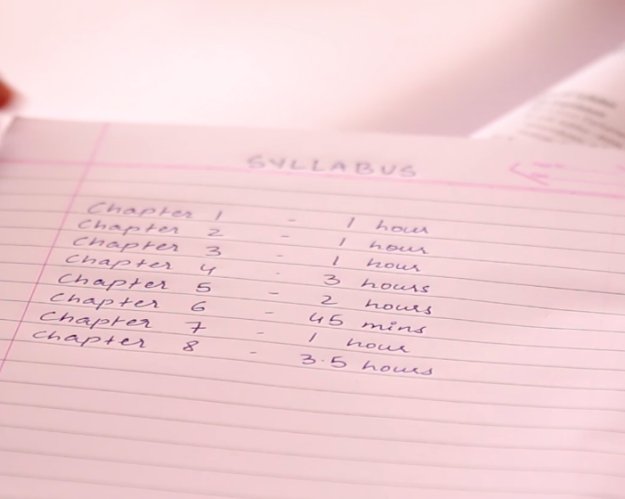 SYLLABUS
Chapter 1 - 1 hour
Chapter 2 - 1 hour
Chapter 3 - 1 hour
Chapter 4 - 3 hours
Chapter 5 - 2 hours
Chapter 6 - 45 mins
Chapter 7 - 1 hour
Chapter 8 - 3.5 hours